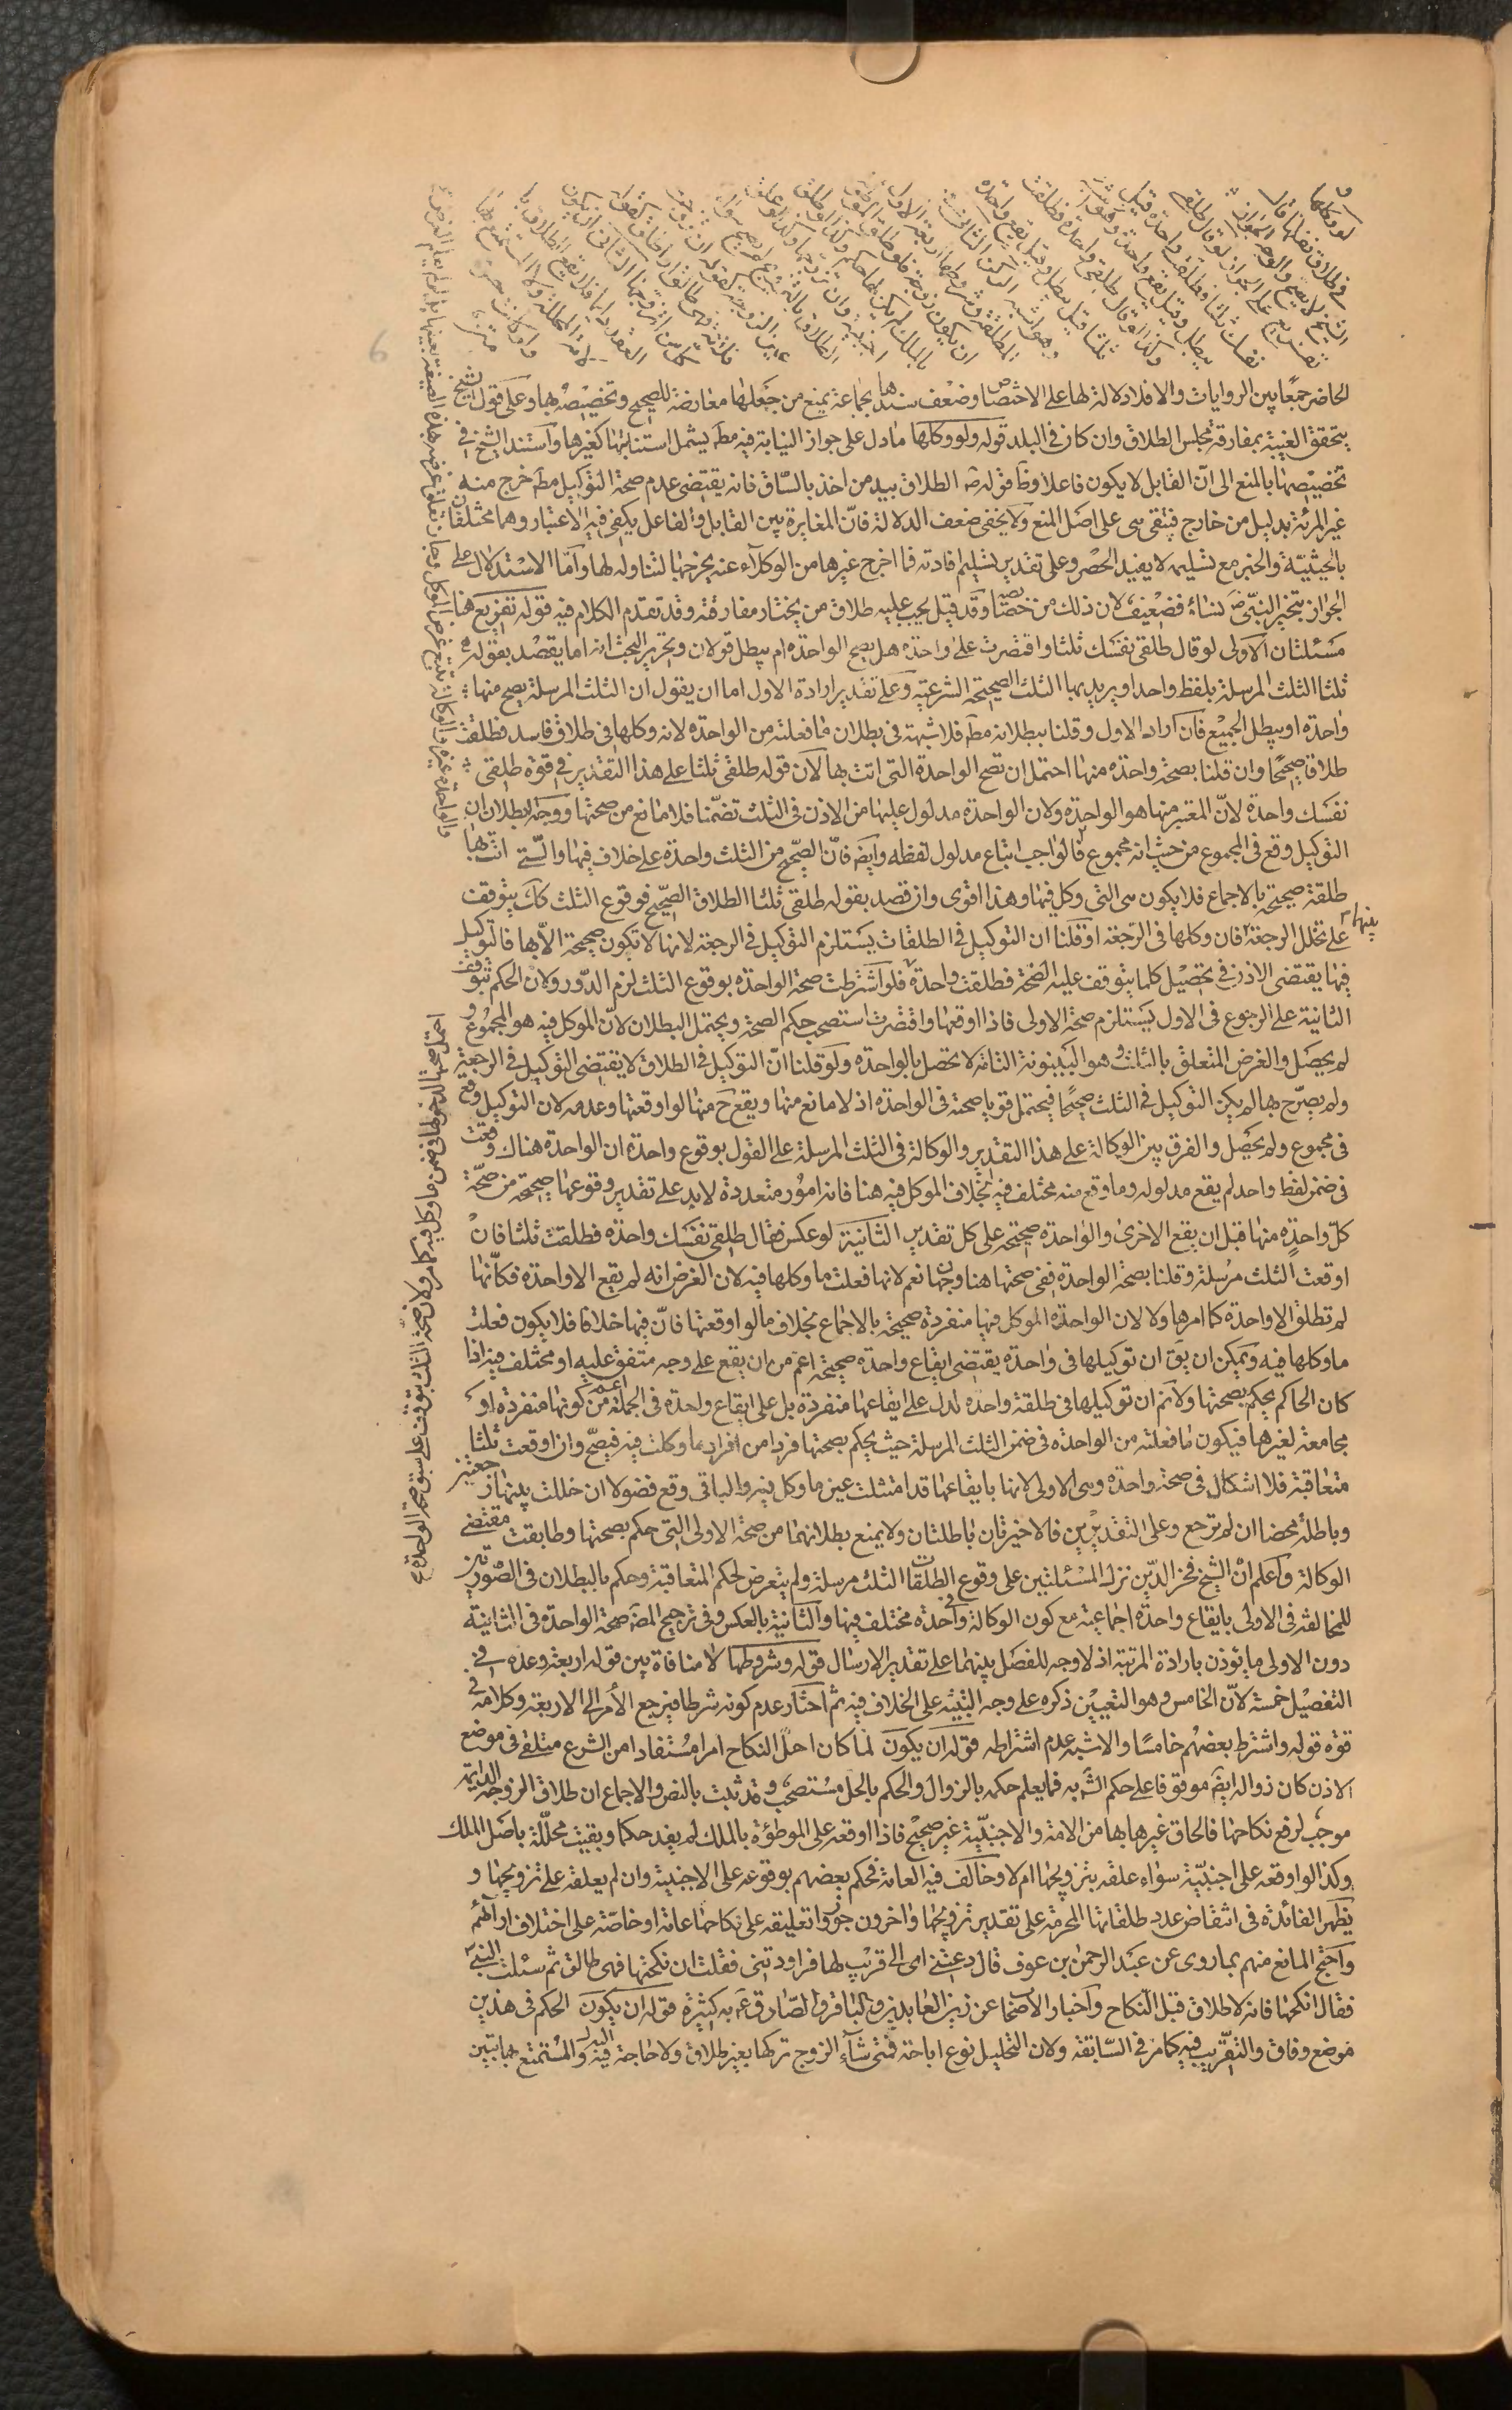 ولو وكلها
في طلاق نفسها قال
الشيخ لا يصح والوجه الجواز
تفريع على الجواز لو قال طلقي
نفسك ثلثا فطلقت واحدة قيل
يبطل وقيل يقع واحدة
وكذا لو قال طلقي واحدة فطلقت
ثلثا قيل يبطل وقيل يقع واحدة
وهو اشبه الركن الثاني في
المطلقة وشروطها اربعة الاول
ان يكون زوجة فلو طلق الموطوءة
بالملك لم يكن لها حكم وكذا لو طلق
اجنبية وان تزوجها وكذا لو علق
الطلاق بالتزويج لم يصح سواء
عين الزوجة كقوله ان تزوجت
فلانة فهي طالق او اطلق كقوله
كل من اتزوجها الثاني ان يكون
العقد دائما فلا يقع الطلاق بالامة
المحللة ولا المستمتع بها
ولو كانت حرة
الحاضر جمعًا بين الروايات والا فلا دلالة لها على الاختصاص وضعف سندها بجماعة يمنع من جعلها معارضة للصحيح وتخصيصه بها وعلى قول الشيخ
يتحقق الغيبة بمفارقة مجلس الطلاق وان كان في البلد قوله ولو وكلها ما دل على جواز النيابة فيه مط يشمل استنابتها كغيرها واستند الشيخ في
تخصيصها بالمنع الى انّ القابل لا يكون فاعلا وظ قوله ص الطلاق بيد من اخذ بالسّاق فانه يقتضى عدم صحة التوكيل مط خرج منه
غير المرئة بدليل من خارج فتبقى هى على اصل المنع ولا يخفى ضعف الدلالة فانّ المغايرة بين القابل والفاعل يكفى فيه الاعتبار وهما مختلفان
بالحيثيّة والخبر مع تسليمه لا يفيد الحصر وعلى تقدير تسليم افادته فما اخرج غيرها من الوكلاء عنه يخرجها لتناوله لها وامّا الاستدلال على
الجواز بتخيير النبىّ ص نساءه فضعيف لان ذلك من خصايصه وقد قيل يجب عليه طلاق من يختار مفارقته وقد تقدم الكلام فيه قوله تفريع هنا
مسئلتان الاولى لو قال طلقى نفسك ثلثا واقتصرت على واحدة هل يصح الواحدة ام يبطل قولان وتحرير البحث انه اما يقصد بقوله
ثلثا الثلث المرسلة بلفظ واحد او يريد بها الثلث الصحيحة الشرعية وعلى تقدير ارادة الاول اما ان يقول ان الثلث المرسلة يصح منها
واحدة او يبطل الجميع فان اراد الاول وقلنا ببطلانه مط فلا شبهة فى بطلان ما فعلته من الواحدة لانه وكلها فى طلاق فاسد فطلقت
طلاقا صحيحًا وان قلنا بصحة واحدة منها احتمل ان تصح الواحدة التى اتت بها لان قوله طلقى ثلثا على هذا التقدير فى قوة طلقى
نفسك واحدة لانّ المعتبر منها هو الواحدة ولان الواحدة مدلول عليها من الاذن فى الثلث تضمّنا فلا مانع من صحتها ووجه البطلان ان
التوكيل وقع فى المجموع من حيث انه مجموع فالواجب اتباع مدلول لفظه وايضا فانّ الصحيح من الثلث واحدة على خلاف فيها والّتى اتت بها
طلقة صحيحة بالاجماع فلا يكون هى التى وكل فيها وهذا اقوى وان قصد بقوله طلقى ثلثا الطلاق الصحيح فوقوع الثلث كك يتوقف
على تخلل الرجعة بينها فان وكلها فى الرجعة او قلنا ان التوكيل فى الطلقات يستلزم التوكيل فى الرجعة لانها لا تكون صحيحة الّا بها فالتوكيل
فيها يقتضى الاذن فى تحصيل كلما يتوقف عليه الصّحة فطلقت واحدة فلو اشترطت صحة الواحدة بوقوع الثلث لزم الدّور ولان الحكم بتوقف
الثانية على الرجوع فى الاول يستلزم صحة الاولى فاذا اوقعها واقتصرت استصحب حكم الصحة ويحتمل البطلان لانّ الموكل فيه هو المجموع و
لم يحصل والغرض المتعلق بالثلث وهو البينونة التامّة لا تحصل بالواحدة ولو قلنا انّ التوكيل فى الطلاق لا يقتضى التوكيل فى الرجعة
ولم يصرّح بها لم يكن التوكيل فى الثلث صحيحًا فيحتمل قويا صحته فى الواحدة اذ لا مانع منها ويقع ح منها لو اوقعتها وعدمه لان التوكيل وقع
فى مجموع ولم يحصل والفرق بين الوكالة على هذا التقدير والوكالة فى الثلث المرسلة على القول بوقوع واحدة ان الواحدة هناك وقعت
فى ضمن لفظ واحد لم يقع مدلوله وما وقع منه مختلف فيه بخلاف الموكل فيه هنا فانه امور متعددة لا بد على تقدير وقوعها صحيحة من صحّة
كلّ واحدة منها قبل ان يقع الاخرى والواحدة صحيحة على كل تقدير الثانية لو عكس فقال طلقى نفسك واحدة فطلقت ثلثا فان
اوقعت الثلث مرسلة وقلنا بصحة الواحدة ففى صحتها هنا وجهان نعم لانها فعلت ما وكلها فيه لان الغرض انه لم يقع الا واحدة فكانّها
لم تطلق الا واحدة كما امرها ولا لان الواحدة الموكل فيها منفردة صحيحة بالاجماع بخلاف ما لو اوقعتها فانّ فيها خلافا فلا يكون فعلت
ما وكلها فيه ويمكن ان يق ان توكيلها فى واحدة يقتضى ايقاع واحدة صحيحة اعم من ان يقع على وجه متفق عليه او مختلف فيه اذا
كان الحاكم يحكم بصحتها ولا نم ان توكيلها فى طلقة واحدة لدل على ايقاعها منفردة بل على ايقاع واحدة فى الجملة اعم من كونها منفردة او
مجامعة لغيرها فيكون ما فعلته من الواحدة فى ضمن الثلث المرسلة حيث يحكم بصحتها فردا من افراد ما وكلت فيه فيصحّ وان اوقعت ثلثا
متعاقبة فلا اشكال فى صحة واحدة وهى الاولى لانها بايقاعها قد امتثلت عين ما وكل فيه والباقى وقع فضولا ان خللت بينها رجعتين
وباطلة محضا ان لم ترجع وعلى التقديرين فالاخيرتان باطلتان ولا يمنع بطلانهما من صحة الاولى التى حكم بصحتها وطابقت مقتضى
الوكالة واعلم انّ الشيخ فخر الدّين نزل المسئلتين على وقوع الطلقات الثلث مرسلة ولم يتعرض لحكم المتعاقبة وحكم بالبطلان فى الصّورتين
للمخالفة فى الاولى بايقاع واحدة اجماعية مع كون الوكالة فى واحدة مختلف فيها والثانية بالعكس وفى ترجيح المص صحة الواحدة فى الثانية
دون الاولى ما يؤذن بارادة المرتبة اذ لا وجه للفصل بينهما على تقدير الارسال قوله وشروطها لا منافاة بين قوله اربعة وعده فى
التفصيل خمسة لانّ الخامس وهو التعيين ذكره على وجه التنبيه على الخلاف فيه ثم اختار عدم كونه شرطا فيرجع الأمر الى الاربعة وكلامه فى
قوة قوله واشترط بعضهم خامسًا والاشبه عدم اشتراطه قوله ان يكون لما كان احلّ النكاح امرا مستفادا من الشرع متلقى فى موضع
الاذن كان زواله ايضا موقوفا على حكم الش به فما يعلم حكمه بالزوال والحكم بالحل مستصحب وقد ثبت بالنص والاجماع ان طلاق الزوجة الدايمة
موجب لرفع نكاحها فالحاق غيرها بها من الامة والاجنبيّة غير صحيح فاذا اوقعه على الموطوءة بالملك لم يفد حكما وبقيت محلّلة باصل الملك
وكذا لو اوقعه على اجنبيّة سواء علقه بتزويجها ام لا وخالف فيه العامة فحكم بعضهم بوقوعه على الاجنبية وان لم يعلقه على تزويجها و
يظهر الفائدة فى انتقاض عدد طلقاتها المحرمة على تقدير تزويجها واخرون جوّزوا تعليقه على نكاحها عامة او خاصّة على اختلاف ارائهم
واحتج المانع منهم بما روى عن عبد الرحمن بن عوف قال دعتنى امى الى قريب لها فراودتنى فقلت ان نكحتها فهى طالق ثم سئلت النبىّ
فقال انكحها فانه لا طلاق قبل النكاح واخبار الاصحاب عن زين العابدين والباقر والصّادق ع به كثيرة قوله ان يكون الحكم فى هذين
موضع وفاق والتقريب فيه كما مر فى السّابقة ولان التحليل نوع اباحة فمتى شاء الزوج تركها بغير طلاق ولا حاجة فيه اليه والمستمتع بها تبين
احتمل صحتها لدخولها فى ضمن ما وكل فيه كما مر ولان صحة الثلث يتوقف على سبق صحة الواحدة